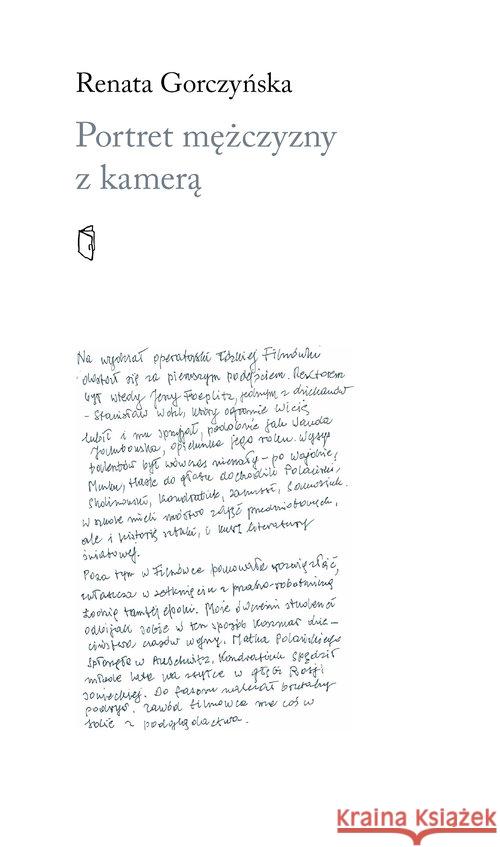 Renata Gorczyńska
Portret mężczyzny
z kamerą
Na wydział operatorski łódzkiej Filmówki
dostał się za pierwszym podejściem. Rektorem
był wtedy Jerzy Toeplitz, jednym z dziekanów
– Stanisław Wohl, który ogromnie Wicię
lubił i mu sprzyjał, podobnie jak Wanda
Jakubowska, opiekunka jego roku. Wysyp
talentów był wówczas niemały – po Wajdzie,
Munku, Hasie do głosu dochodzili Polański,
Skolimowski, Kondratiuk, Zanussi,
W szkole mieli mnóstwo zajęć przedmiotowych,
ale i historię sztuki, i kurs literatury
światowej.
Poza tym w Filmówce panowało rozwiązłość,
zwłaszcza w zetknięciu z pruderią robotniczą
Łodzią tamtej epoki. Może ówcześni studenci
odbijali sobie w ten sposób koszmar dzie-
ciństwa czasów wojny. Matka Polańskiego
spłonęła w Auschwitz, Kondratiuk spędził
młode lata na zsyłce w głębi Rosji
sowieckiej. Do tego materiał brutalny
podryw. Zawód filmowca ma coś w
sobie z podglądactwa.
KRAINA KSIAZEK.PL